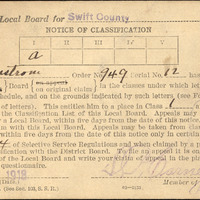 Local Board for Swift County
NOTICE OF CLASSIFICATION
I II III IV V
a
strom Order No. 949 Serial No. 12
Board (on appeal original) in the classes under which le
hedule, and on the grounds indicated by such letters (see Fo
of letters). This entitles him to a place in Class
the Classification List of this Local Board. Appeals may
a Local Board, within five days from the date of this notice
m with this Local Board. Appeals may be taken from clas
within five days from the date of this notice only in certai
of Selective Service Regulations and when claiming a
jurisdiction with the District Board. To file an appeal it
of the Local Board and write your claim of appeal in the
questionnaire.
1918
(See Sec. 103, S. S. R.)
Member of